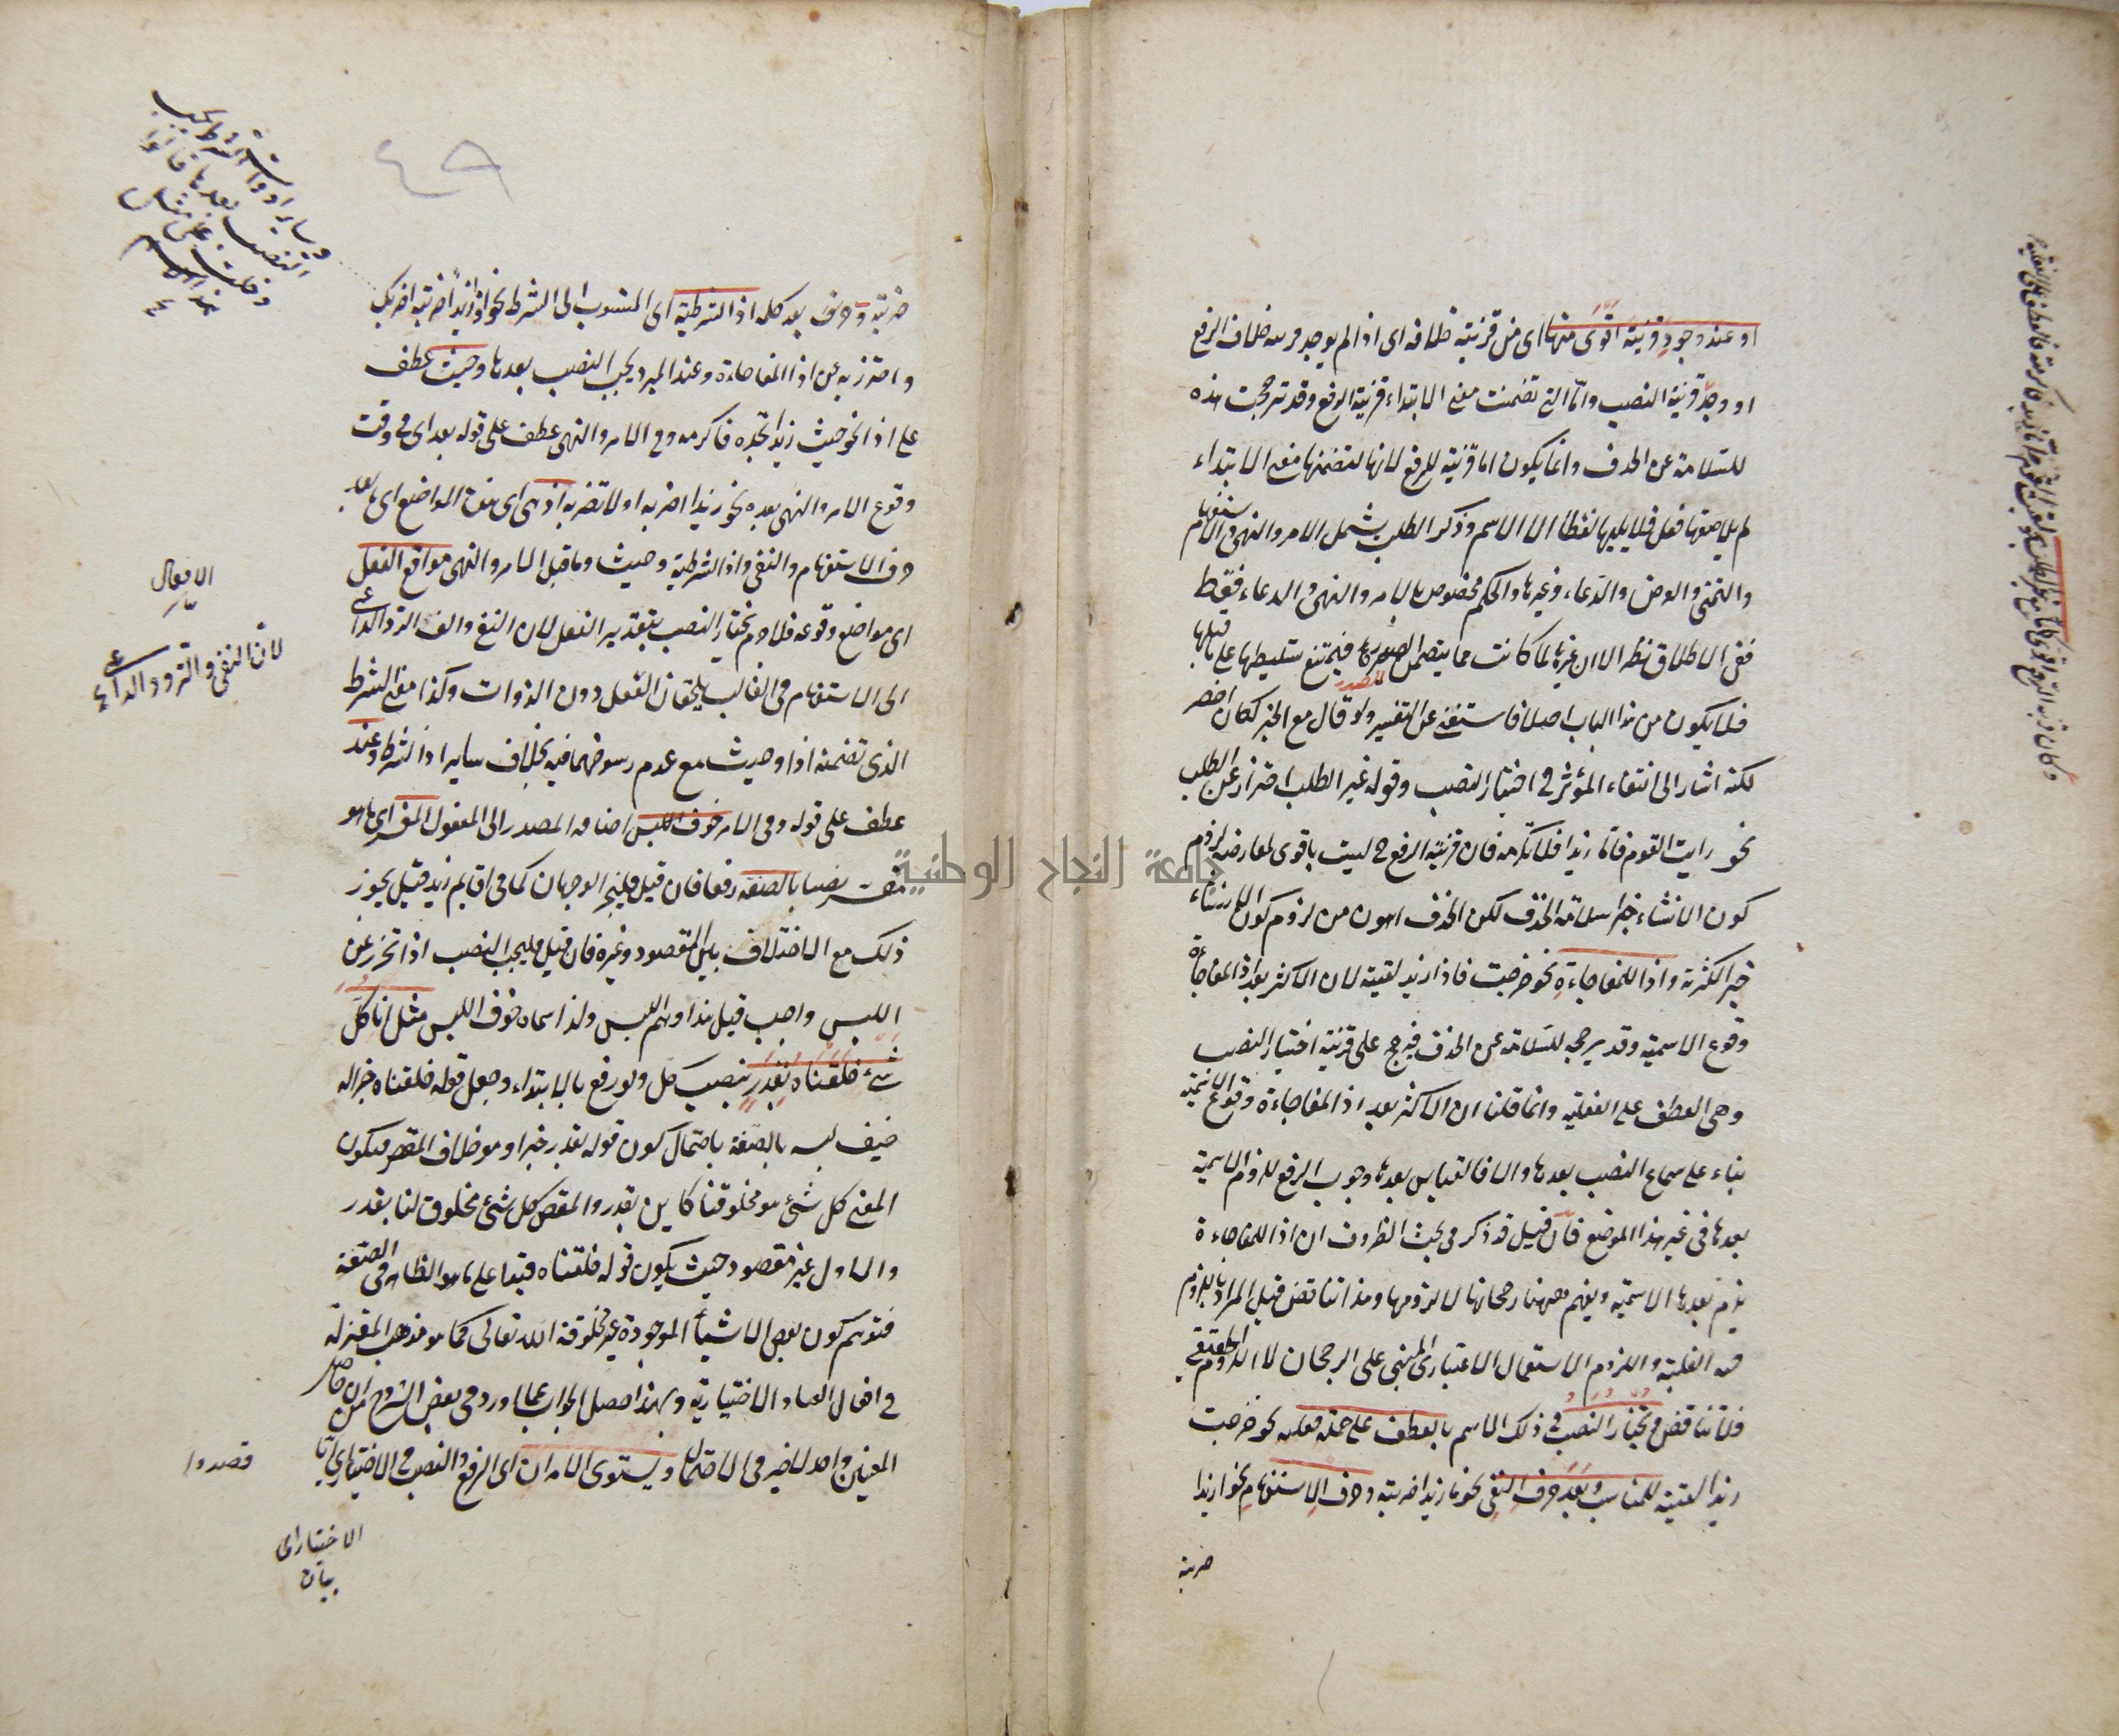 او عند وجود قرينة اقوى منها اى من قرينة خلافه اى اذا لم يوجد قرينه خلاف الرفع
او وجد قرينة النصب واما التى تضمنت معنى الابتداء قرينة الرفع وقد ترجحت هذه
للسلامة عن الحذف وانما يكون اما قرينة للرفع لانها لتضمنها معنى الابتداء
لم يلاصقها فعل فلا يليها لفظا الا الاسم وذكر الطلب يشمل الامر والنهى والاستفهام
والتمنى والعرض والدعاء وغيرها والحكم مخصوص بالامر والنهى والدعاء فقط
ففى الاطلاق نظر الا ان غيرها لما كانت مما يتصدر فيمتنع تسليطها على ما قبلها
فلا يكون من هذا الباب اصلا فاستغنى عن التفسير ولو قال مع الخبر لكان اخصر
لكنه اشار الى انتفاء المؤثر فى اختيار النصب وقوله غير الطلب احتراز عن الطلب
نحو رايت القوم فاما زيدا فلا تكرمه فان قرينة الرفع ح ليست باقوى لمعارضة لزوم
كون الانشاء خبرا سلامة الحذف لكن الحذف اهون من لزوم كون الانشاء
خبرا لكثرته واذا للمفاجاءة نحو خرجت فاذا زيد لقيته لان الاكثر بعد اذا المفاجأة
وقوع الاسمية وقد يرجح للسلامة عن الحذف فيرجح على قرينة اختيار النصب
وهى العطف على الفعلية وانما قلنا ان الاكثر بعد اذا المفاجاءة وقوع الاسمية
بناء على سماع النصب بعدها والا فالقياس بعدها وجوب الرفع للزوم الاسمية
بعدها فى غير هذا الموضع فان قيل قد ذكر فى بحث الظروف ان اذا للمفاجاءة
يلزم بعدها الاسمية ويفهم ههنا رجحانها لا لزومها وهذا تناقض قيل المراد باللزوم
فيه الغلبة واللزوم الاستعمال الاعتبارى المبنى على الرجحان لا اللزوم الحقيقى
فلا تناقض ويختار النصب فى ذلك الاسم بالعطف على جملة فعليه نحو خرجت
زيدا لقيته للتناسب وبعد حرف النفى نحو ما زيدا ضربته وحرف الاستفهام نحو ازيدا
ضربته
٤٩
ضربته وحرف بعد كلمه اذا الشرطية اى المنسوب الى الشرط نحو اذا زيدا ضربته اضربك
واحترز به عن اذا المفاجاءة وعند المبرد يجب النصب بعدها وحيث عطف
على اذا نحو حيث زيدا تجده فاكرمه وفى الامر والنهى عطف على قوله بعد اى فى وقت
وقوع الامر والنهى بعده نحو زيدا اضربه او لا تضربه اذ هى اى هذه المواضع اى ما بعد
حرف الاستفهام والنفى واذا الشرطية وحيث وما قبل الامر والنهى مواقع الفعل
اى مواضع وقوعه فلا جرم يختار النصب بتقدير الفعل لان النفى والف التردد الداعى
الى الاستفهام فى الغالب يلحقان الفعل دون الذوات وكذا معنى الشرط
الذى تضمنه اذا وحيث مع عدم رسوخهما فيه بخلاف ساير اذا الشرط وعند
عطف على قوله وفى الامر خوف اللبس اضافه المصدر الى المفعول المفسر اى ما هو
مفسر نصبا بالصفة رفعا فان قيل فليجز الوجهان كما فى اقايم زيد قيل يجوز
ذلك مع الاختلاف بالمقصود وغيره فان قيل فليجب النصب اذا تحرز عن
اللبس واجب قيل هذا وهم اللبس ولذا سماه خوف اللبس مثل انا كل
شىء خلقناه بقدر بنصب كل ولو رفع بالابتداء وجعل قوله خلقناه خبرا له
خيف لبسه بالصفة باحتمال كون قوله بقدر خبرا وهو خلاف المقصود فيكون
المعنى كل شىء هو مخلوقنا كاين بقدر والمقصود كل شىء مخلوق لنا بقدر
والاول غير مقصود حيث يكون قوله خلقناه قيدا على ما هو الظاهر فى الصفة
فتوهم كون بعض الاشياء الموجودة غير مخلوقة الله تعالى كما هو مذهب المعتزلة
فى افعال العباد الاختيارية وبهذا حصل الجواب عما اورد فى بعض الشروح من ان حاصل
المعنيين واحد لا ضير فى الاحتمال ويستوى الامران اى الرفع والنصب فى الاختيار اى
الافعال
لان النفى والتردد الداعى
قصدوا
الاختيار اى
بيان
جامعة النجاح الوطنية